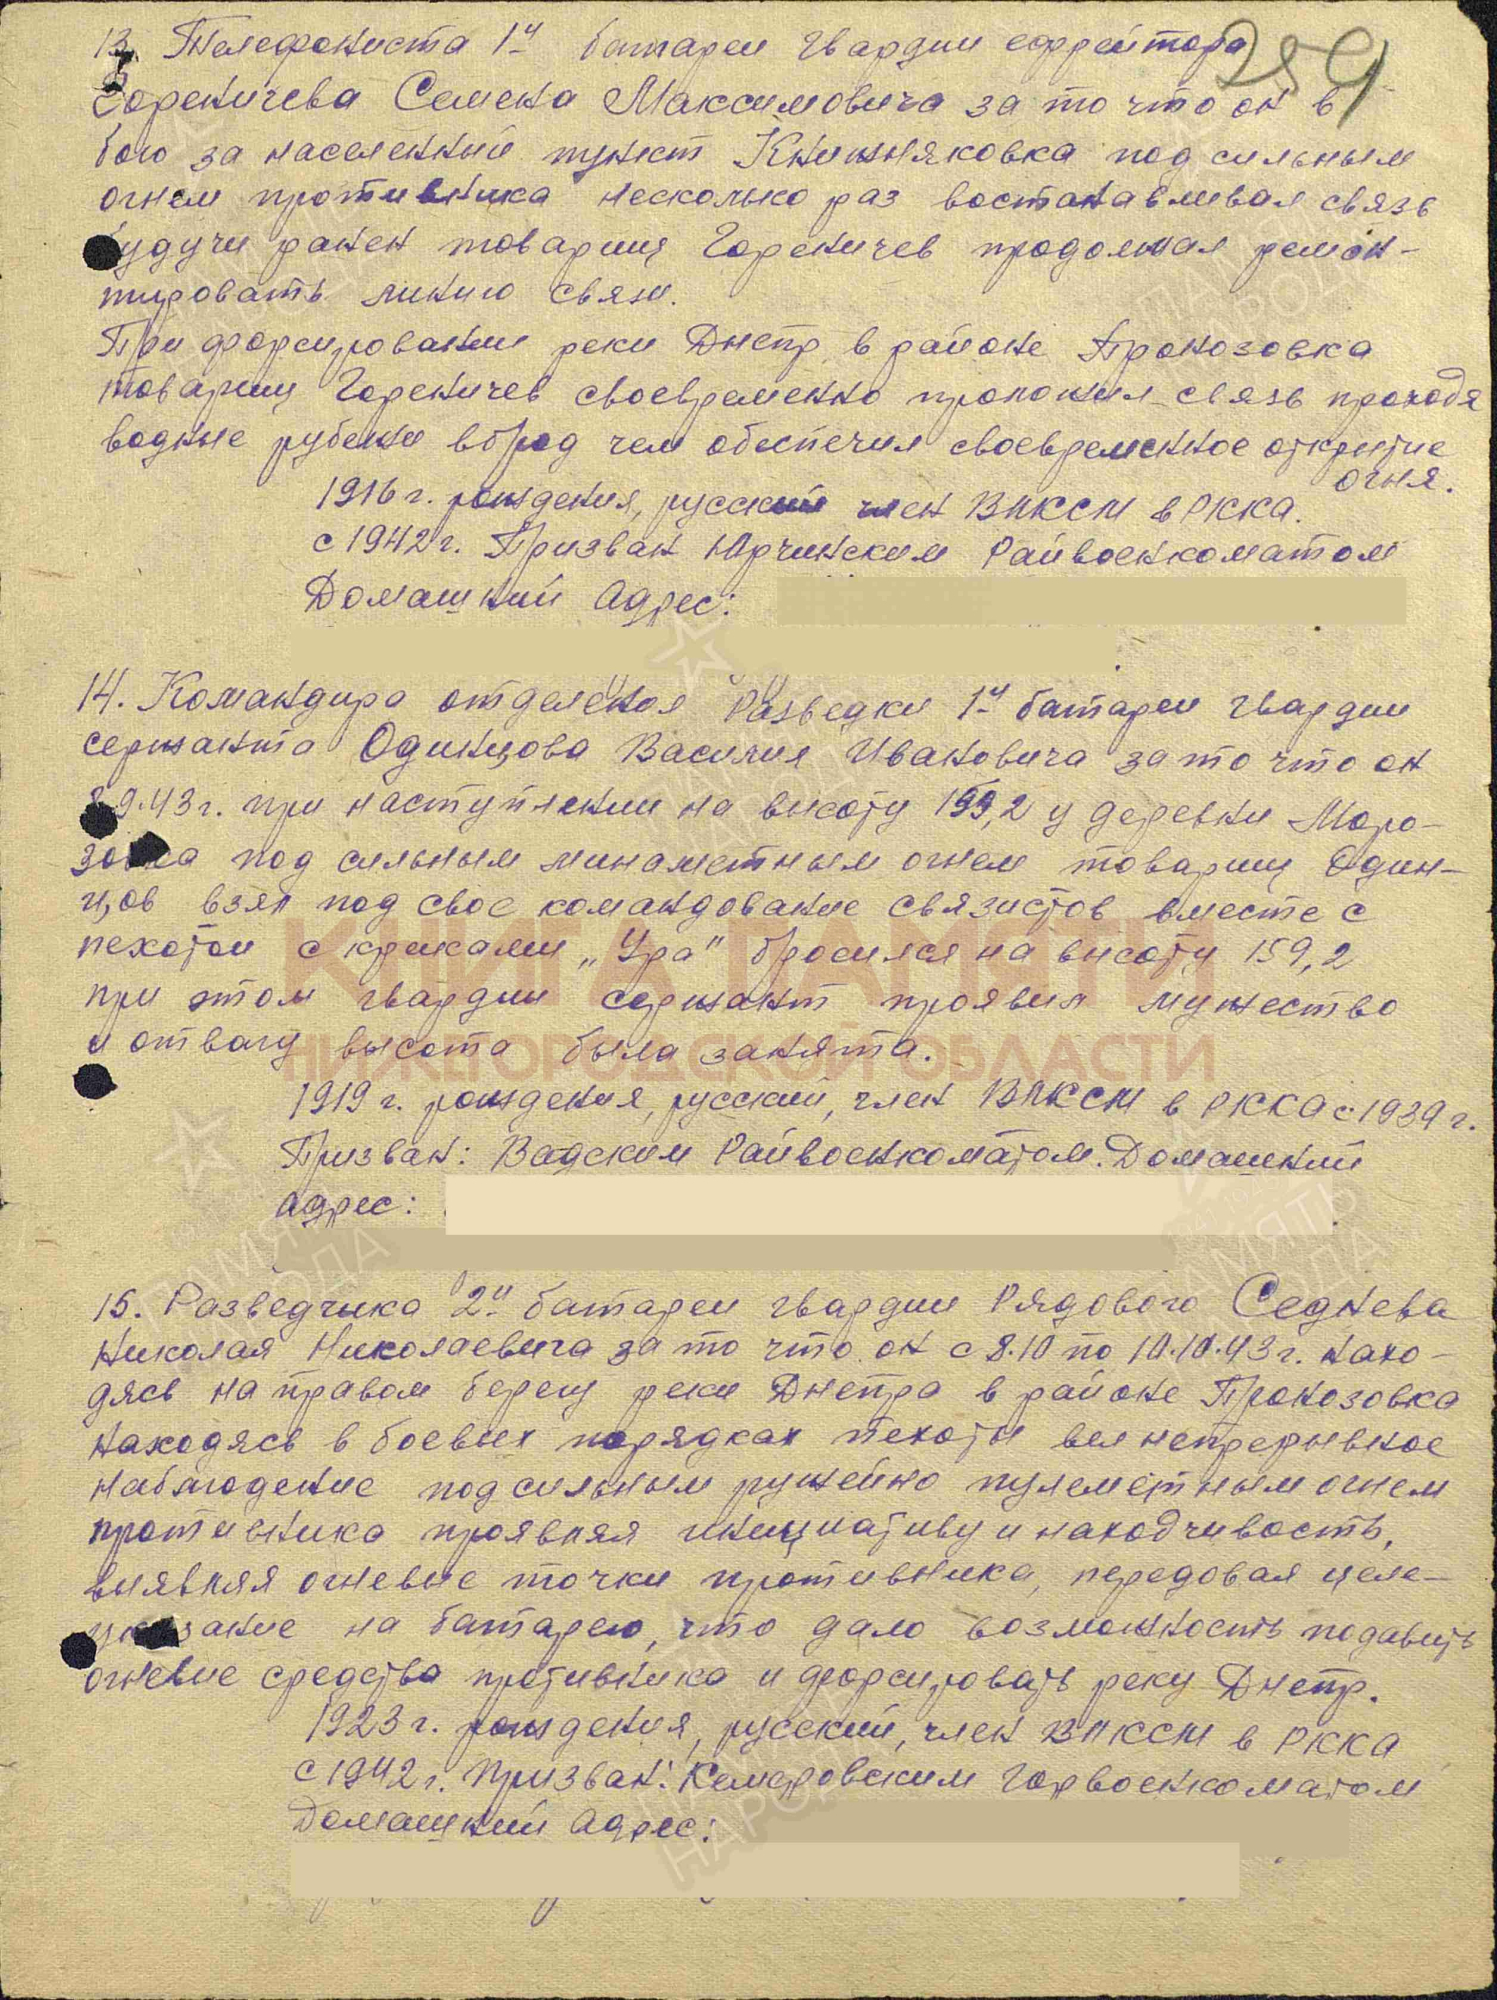 259
13. Телефониста 1й батареи гвардии ефрейтора
Гореничева Семена Максимовича за то что он в
бою за населенный пункт Книшняковка под сильным
огнем противника несколько раз востанавливал связь
будучи ранен товарищ Гореничев продолжал ремон-
тировать линию связи.
При форсировании реки Днепр в районе Пронозовка
товарищ Гореничев своевременно проложил связь проходя
водные рубежи вброд чем обеспечил своевременное открытие
огня.
1916 г. рождения, русский член ВЛКСМ в РККА.
с 1942 г. Призван Юрчинским Райвоенкоматом
Домашний Адрес:
14. Командира отделения Разведки 1й батареи гвардии
сержанта Одинцова Василия Ивановича за то что он
9.43 г. при наступлении на высоту 159,2 у деревки Моро-
зовка под сильным минаметным огнем товарищ Один-
цов взял под свое командование связистов вместе с
пехотой с криками „Ура" бросился на высоту 159,2
при этом гвардии сержант проявил мужество
и отвагу высота была занята.
1919 г. рождения, русский, член ВЛКСМ в РККА с 1939 г.
Призван: Вадским Райвоенкоматом. Домашний
адрес:
15. Разведчика 2й батареи гвардии Рядового Седнева
Николая Николаевича за то что он с 8.10 по 10.10.43 г. нахо-
дясь на правом берегу реки Днепра в районе Пронозовка
находясь в боевых порядках пехоты вел непрерывное
наблюдение под сильным ружейно пулеметным огнем
противника проявляя инициативу и находчивость,
выявляя огневые точки противника, передовал целе-
указание на батарею, что дало возможность подавить
огневые средства противника и форсировать реку Днепр.
1923 г. рождения, русский, член ВЛКСМ в РККА
с 1942 г. Призван: Кемеровским Горвоенкоматом
Домашний Адрес:
КНИГА ПАМЯТИ
НИЖЕГОРОДСКОЙ ОБЛАСТИ
ПАМЯТЬ
НАРОДА